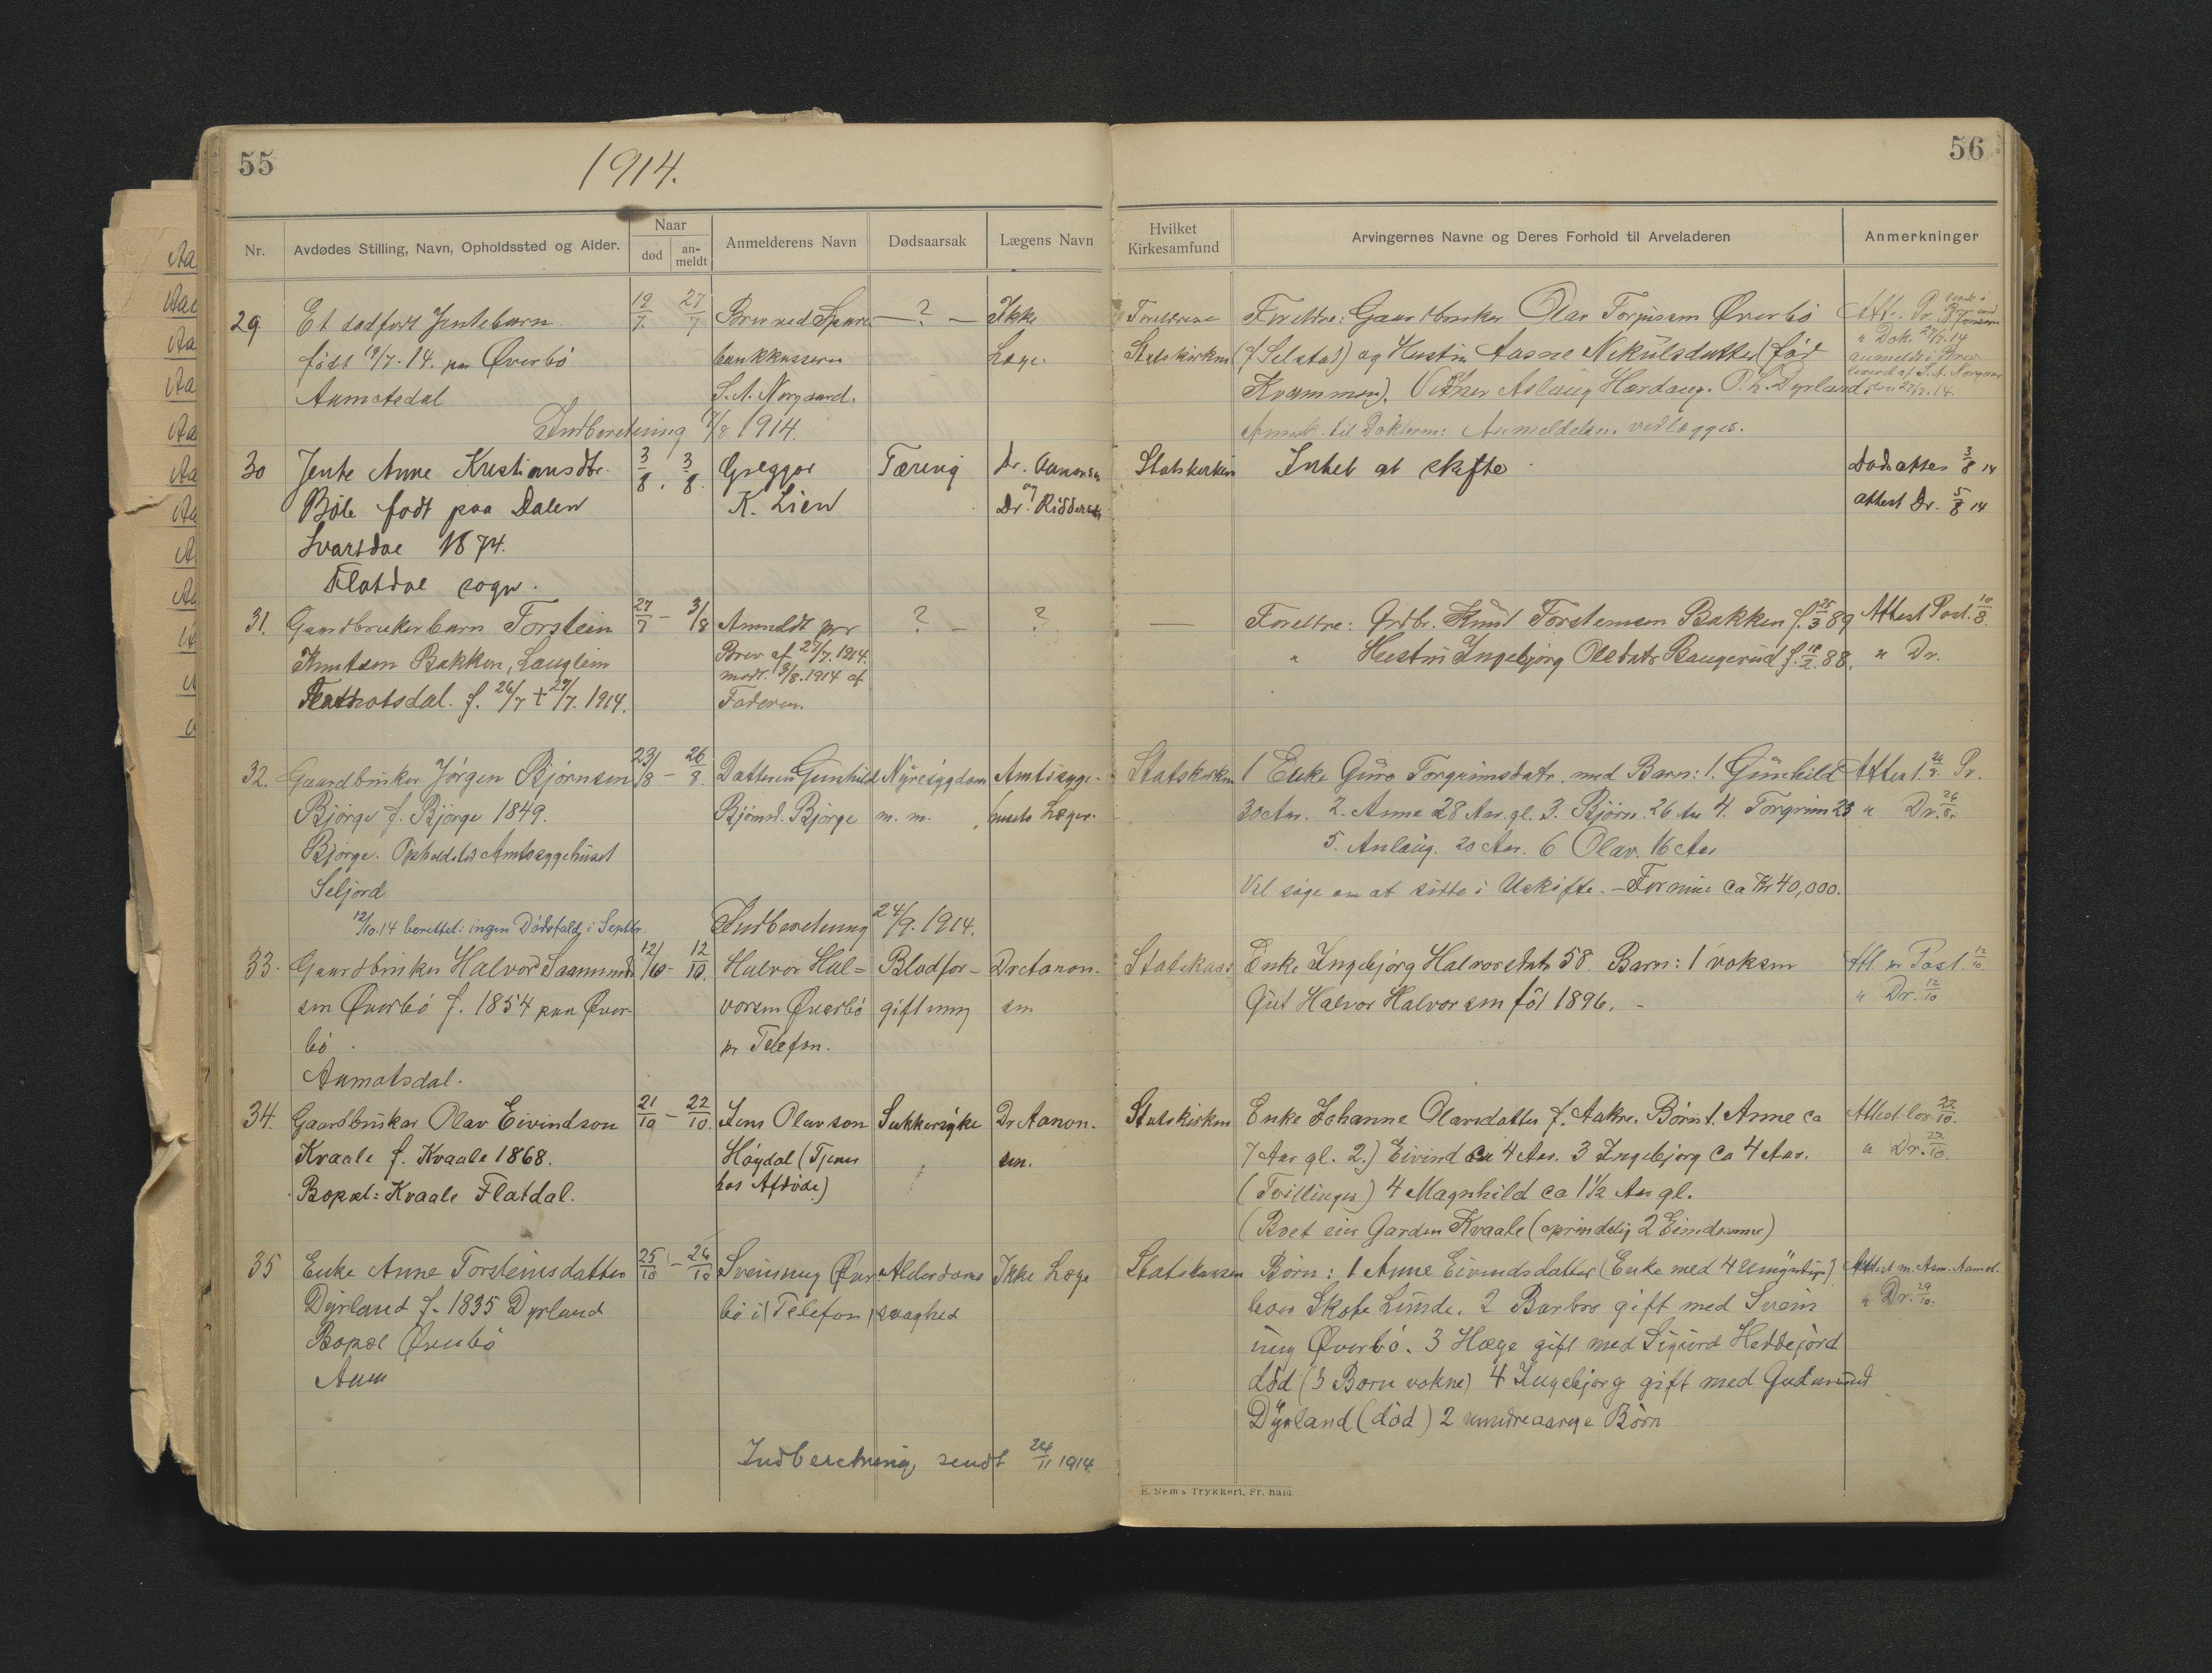 55
1914.
Nr.
Avdødes Stilling, Navn, Opholdssted og Alder.
Naar
død
an-
meldt
Anmelderens Navn
Dødsaarsak
Lægens Navn
29
Et dødfødt Jentebarn
født 19/7. 14. paa Øverbö
Aamotsdal
19/7.
27/7
Brev ved Spare
bankkasserer
S. A. Norgaard.
— ? —
Ikke
Læge.
Indberetning 7/8 1914.
30
Jente Anne Kristiansdtr.
Böle født paa Dalen
Svartdal 1874.
Flatdal sogn.
3/8.
3/8.
Greggor
K. Lien
Tæring
Dr. Aanonsen
og
Dr.
31.
Gaardbrukerbarn Torstein
Knutsen Bakken,
f. 26/7 + 27/7. 1914.
27/7 –
3/8
Anmeldt per
Brev af 27/7. 1914.
modt. 3/8. 1914 af
Faderen.
? –
?
32.
Gaardbruker Jörgen Bjørnsen
Bjørge f. Bjørge 1849.
Bjørge. Opholdsted Amtssygehuset
Seljord
23/8 –
26/8.
Datteren Gunhild
Bjørnsd. Bjørge
Nyresygdom
m. m.
Amtssyge-
husets Læger.
12/10. 14 berettet: ingen Dödsfald i Septbr.
Indberetning 24/9. 1914.
33.
Gaardbruker Halvor Saamund
sen Øverbö f. 1854 paa Øver-
bö.
Aamotsdal.
12/10 –
12/10.
Halvor Hal=
vorsen Øverbö
pr Telefon.
Blodfor-
giftning
Dr Aanon-
sen
34.
Gaardbruker Olav Eivindson
Kvaale f. Kvaale 1868.
Bopæl: Kvaale Flatdal.
21/10 –
22/10.
Jens Olavson
Höydal (Tjener
hos Afdöde)
Sukkersyke
Dr Aanon-
sen.
35
Enke Anne Torsteinsdatter
Dyrland f. 1835 Dyrland
Bopæl Øverbö
Aam
25/10 –
26/10
Sveinung Øver
bö i (Telefon)
Alderdoms
svaghed
Ikke Læge
Indberetning sendt 24/11 1914.
56
Hvilket
Kirkesamfund
Arvingernes Navne og Deres Forhold til Arveladeren
Anmerkninger
Foreldrene
Statskirken
Foreldre: Gaardbruker Olav Torjussen Øverbö
(f. Selstad) og Hustru Aasne Nikulsdatter (föd
Kvammen). Vidner Aslaug Hardang. O. L. Dyrland
Anmeldelsen vedlægges.
Att.
" Dok. 27/7. 14
anmeldt i Brev
leveret af S. A. Norgaard
den 27/7. 14.
Statskirken
Intet at skifte
Dødsattest 3/8 14
attest Dr. 5/8 14
—
Foreldre: Grdbr. Knut Torsteinsen Bakken f. 25/3 89
" Hustru Ingebjörg Olsdatr Baugerud f. 18/2. 88.
Attest Post. 10/8.
" Dr.
Statskirken
1 Enke Guro Torgrimsdatr. med Barn: 1. Gunhild
30 Aar. 2. Anne 28 Aar. gl. 3. Bjørn. 26 Aar 4. Torgrim 23
5. Aslaug. 20 Aar. 6 Olav. 16 Aar
Vil söge om at sitte i Uskifte. – Formue ca Kr 40,000.
Attest. 26/8. Pr.
" Dr. 26/8.
Enke Ingebjörg Halvorsdatr 58. Barn: 1 voksen
Gut Halvor Halvorsen föt 1896. –
Att. pr Post. 12/10.
" Dr. 12/10
Statskirken
Enke Johanne Olavsdatter f. Aakre. Børn 1. Anne ca
7 Aar gl. 2.) Eivind ca 4 Aar. 3 Ingebjörg ca 4 Aar.
(Tvillinger) 4 Magnhild ca 1½ Aar gl.
(Boet eier Garden Kvaale (oprindelig 2 Eiendomme)
22/10.
" Dr. 22/10.
Börn: 1 Anne Eivindsdatter (Enke med 4 Umyndige)
2 Barbro gift med Svein
ung Øverbö. 3 Hæge gift med Sigurd Heddejord
död (3 Born vokne) 4 Ingebjørg gift med Gudmund
Dyrland (död) 2 mindreaarige Börn
" Dr. 29/10.
E. Sem's Trykkeri, Fr. hald